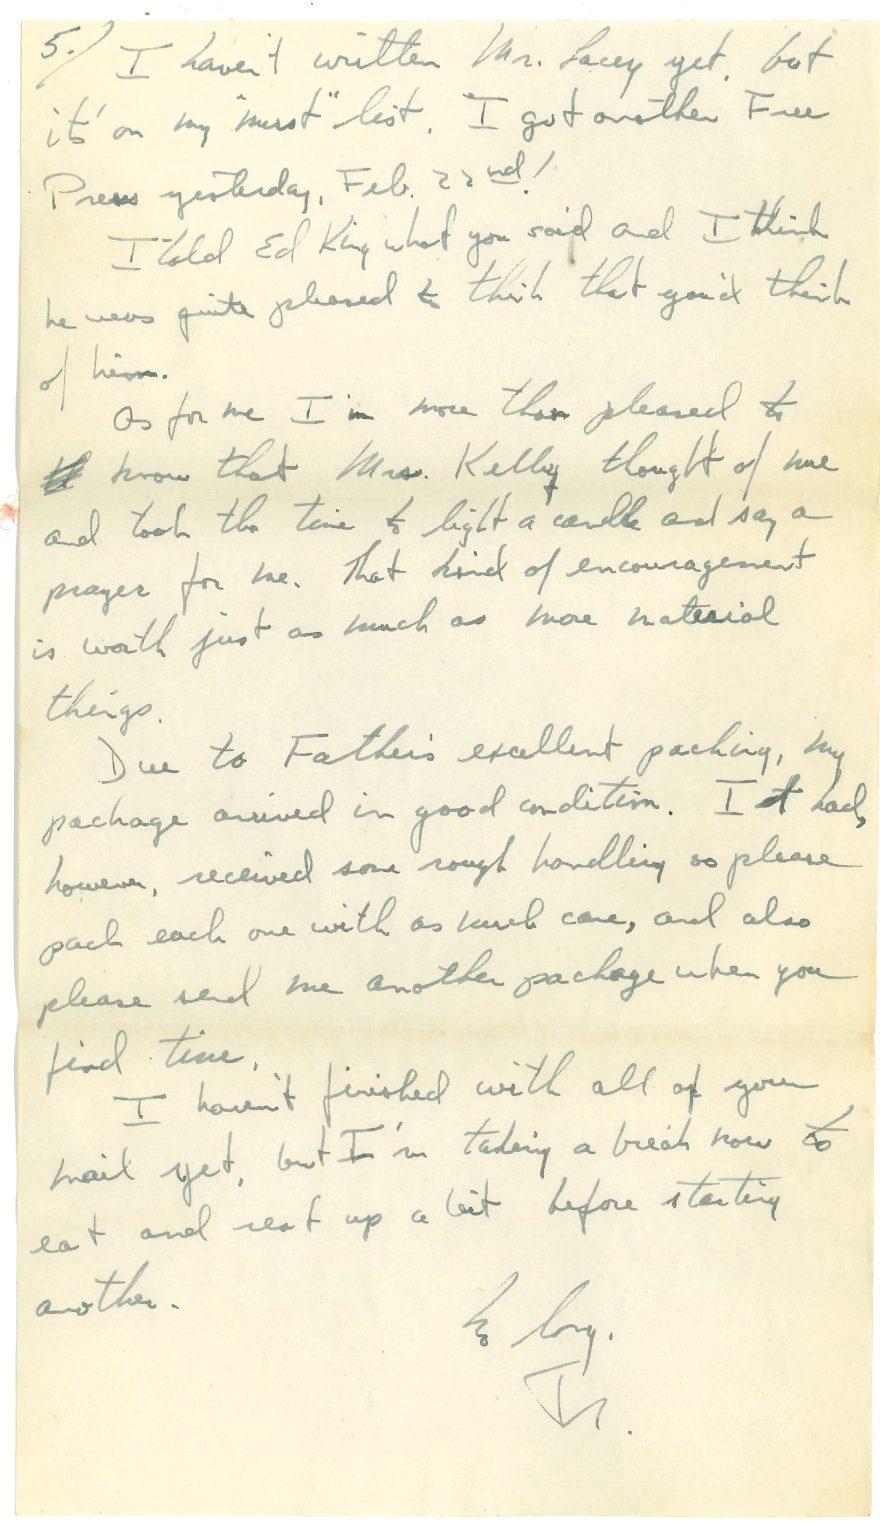 5./ I haven't written Mr. Lacey yet, but
it's on my "must" list. I got another Free
Press yesterday, Feb. 22nd!
I told Ed King what you said and I think
he was quite pleased to think that you'd think
of him.
As for me I'm more than pleased to
know that Mrs. Kelly thought of me
and took the time to light a candle and say a
prayer for me. That kind of encouragement
is worth just as much as more material
things.
Due to Father's excellent packing, my
package arrived in good condition. It had,
however, received some rough handling so please
pack each one with as much care, and also
please send me another package when you
find time.
I haven't finished with all of your
mail yet, but I'm taking a break now to
eat and rest up a bit before starting
another.
So long.
Jr.